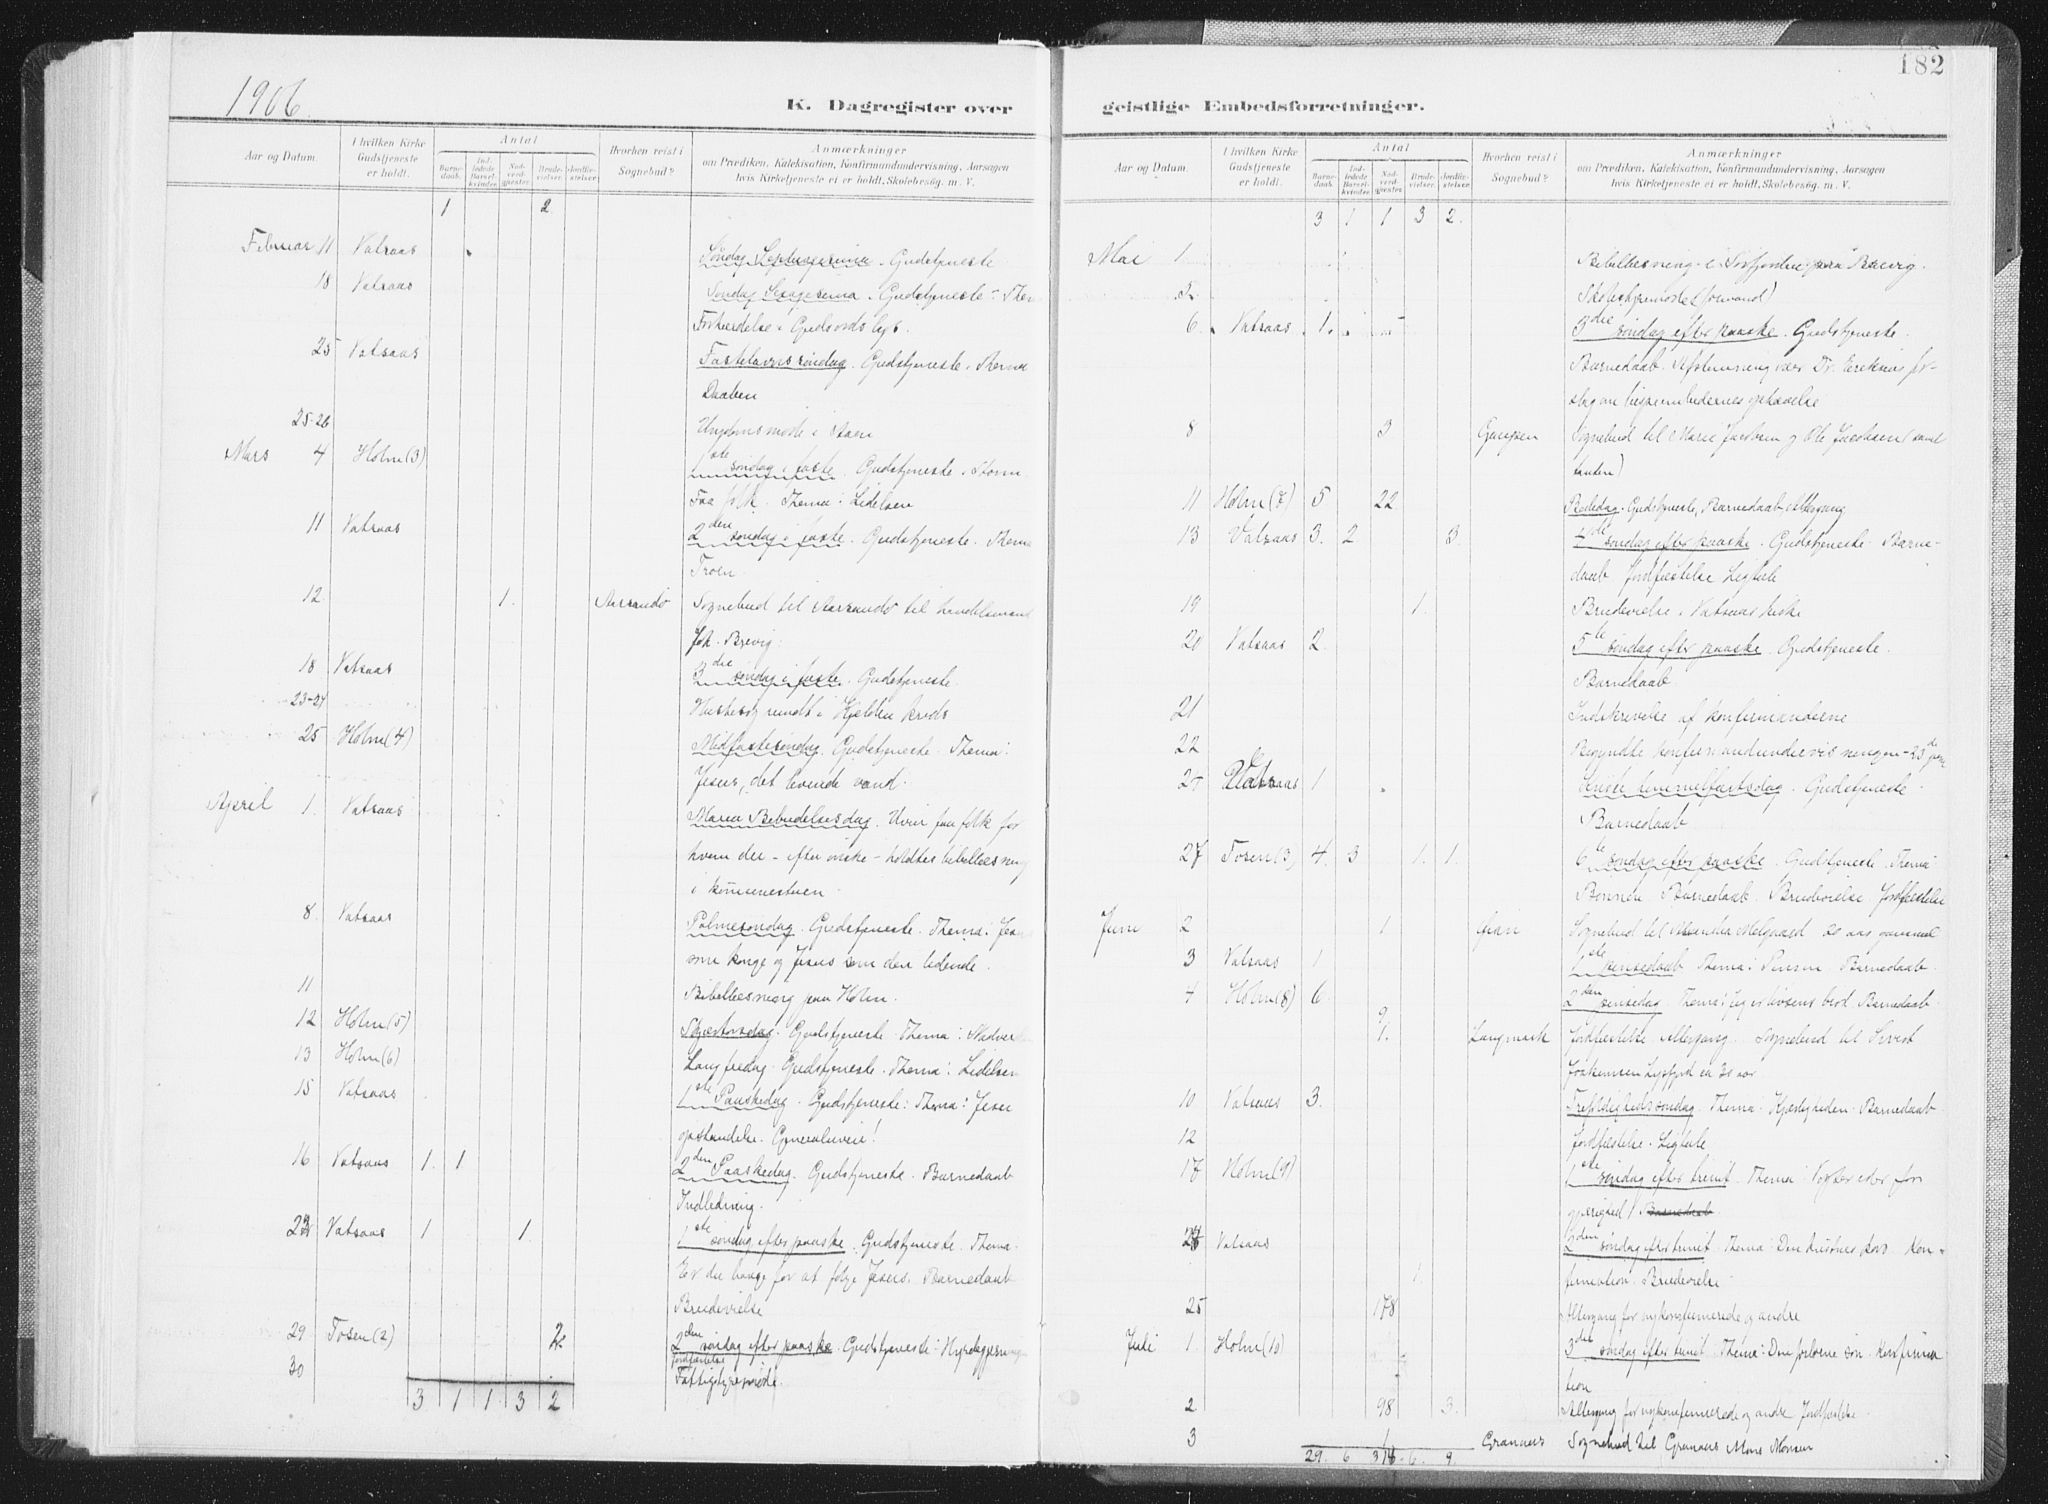 182
1906.
K. Dagregister over geistlige Embedsforretninger.
Aar og Datum. I hvilken Kirke Gudstjeneste er holdt. Antal Barnedaab. Indledede Barselkvinder. Nadverdgjester. Brudevielser. Jordfæstelser. Hvorhen reist i Sognebud? Anmærkninger om Prædiken, Katekisation, Konfirmandundervisning, Aarsagen hvis Kirketjeneste ei er holdt, Skolebesøg. m. V.
1 2
Februar 11 Vatsaas Søndag Septuagesima. Gudstjeneste
18 Vatsaas Søndag Sexagesima. Gudstjeneste - Them
Forkærdelse i Gudsords lys.
25 Vatsaas Fastelavnssøndag. Gudstjeneste. Thema
Daaben
25-26 Ungdomsmøde i
Mars 4 Holm (3) 1ste søndag i faste. Gudstjeneste. Storm
Faa folk. Thema: Lidelsen
11 Vatsaas 2den søndag i faste. Gudstjeneste. Thema
Troen
12. 1. Aarsandø Sognebud til Aarsandø til handelsmand
Joh. Brevig.
18 Vatsaas 3die søndag i faste. Gudstjeneste.
23-24 Husbesøg rundt i Kjelden kreds
25 Holm (4) Midfastesøndag. Gudstjeneste. Thema:
Jesus, det levende vand.
April 1. Vatsaas Maria Bebudelsesdag. Uveir faa folk for
hvem der - efter ønske - holdtes bibellæsning
i
8. Vatsaas Palmesøndag. Gudstjeneste. Thema: Jesus
som konge og Jesus som den lidende.
11 Bibellæsning paa Holm.
12 Holm (5) Skjærtorsdag. Gudstjeneste. Thema: Nadver
13 Holm (6) Langfredag. Gudstjeneste. Thema: Lidelsen
15 Vatsaas 1ste Paaskedag. Gudstjeneste: Thema: Jesu
opstandelse.
16 Vatsaas 1. 1 2den Paaskedag. Gudstjeneste. Barnedaab
Indledning.
22 Vatsaas 1 1. 1ste søndag efter paaske. Gudstjeneste. Thema.
Er du bange for at følge Jesus. Barnedaab
Brudevielse
29 Tosen (2) 2. 2den søndag efter paaske. Gudstjeneste.
Jordfæstelse
30 Fattigstyremøde.
3 1 1 3 2
Aar og Datum. I hvilken Kirke Gudstjeneste er holdt. Antal Barnedaab. Indledede Barselkvinder. Nadverdgjester. Brudevielser. Jordfæstelser. Hvorhen reist i Sognebud? Anmærkninger om Prædiken, Katekisation, Konfirmandundervisning, Aarsagen hvis Kirketjeneste ei er holdt, Skolebesøg. m. V.
3 1 1 3 2.
Mai 1. Bibellæsning i
5. Skolestyremøde (formand)
6. Vatsaas 1. 3die søndag efter paaske. Gudstjeneste.
Barnedaab. Afstemning over Dr. Eriksens for-
slag om bispeembedernes ophævelse
8 3 Sognebud til Marie Jacobsen og Ole Jacobsen (samt
tanten)
11 Holm (7) 5 22 Bededag. Gudstjeneste, Barnedaab Altergang
13 Vatsaas 3. 2 3. 4de søndag efter paaske. Gudstjeneste. Barne-
daab Jordfæstelse Ligtale
19 1. Brudevielse i Vatsaas kirke
20 Vatsaas 2. 5te søndag efter paaske. Gudstjeneste.
Barnedaab
21 Indskrivelse af konfirmanderne
22 Begyndte konfirmandundervisningen - 23de
Vatsaas 1 Kristi himmelfartsdag. Gudstjeneste.
Barnedaab
27 Tosen (3) 4. 3 1. 1. 6te søndag efter paaske. Gudstjeneste. Thema:
Bønnen. Barnedaab. Brudevielse Jordfæstelse
Juni 2 1 Sognebud til 20 aar gammel
3 Vatsaas 1 1ste pinsedag Thema: Pinsen. Barnedaab.
4 Holm (8) 6. 2den pinsedag. Thema: Jeg er livsens brød. Barnedaab.
9
1. Langmark Jordfæstelse. Altergang. Sognebud til Sivert
Joakimsen ca 30 aar
10 Vatsaas 3. Trefoldighedssøndag. Thema: Kjærligheden. Barnedaab
12 Jordfæstelse. Ligtale
17 Holm (9) 1ste søndag efter trinit. Thema: Vogter eder for
gjerrighed! Barnedaab
24 Vatsaas 2den søndag efter trinit. Thema: Den kristnes kors. Kon-
1. firmation. Brudevielse
25 178 Altergang for nykonfirmerede og andre
Juli 1. Holm (10) 3die søndag efter trinit. Thema: Den fortabte søn. Konfirma
tion
2 98 3. Altergang for nykonfirmerede og andre Jordfæstelse.
3 1 Granaas Sognebud til Granaas Mons Monsen
29. 6 6. 9.